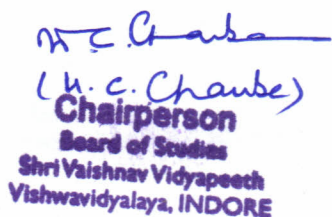 (H. C. Chaube)
Chairperson
Board of Studies
Shri Vaishnav Vidyapeeth
Vishwavidyalaya, INDORE